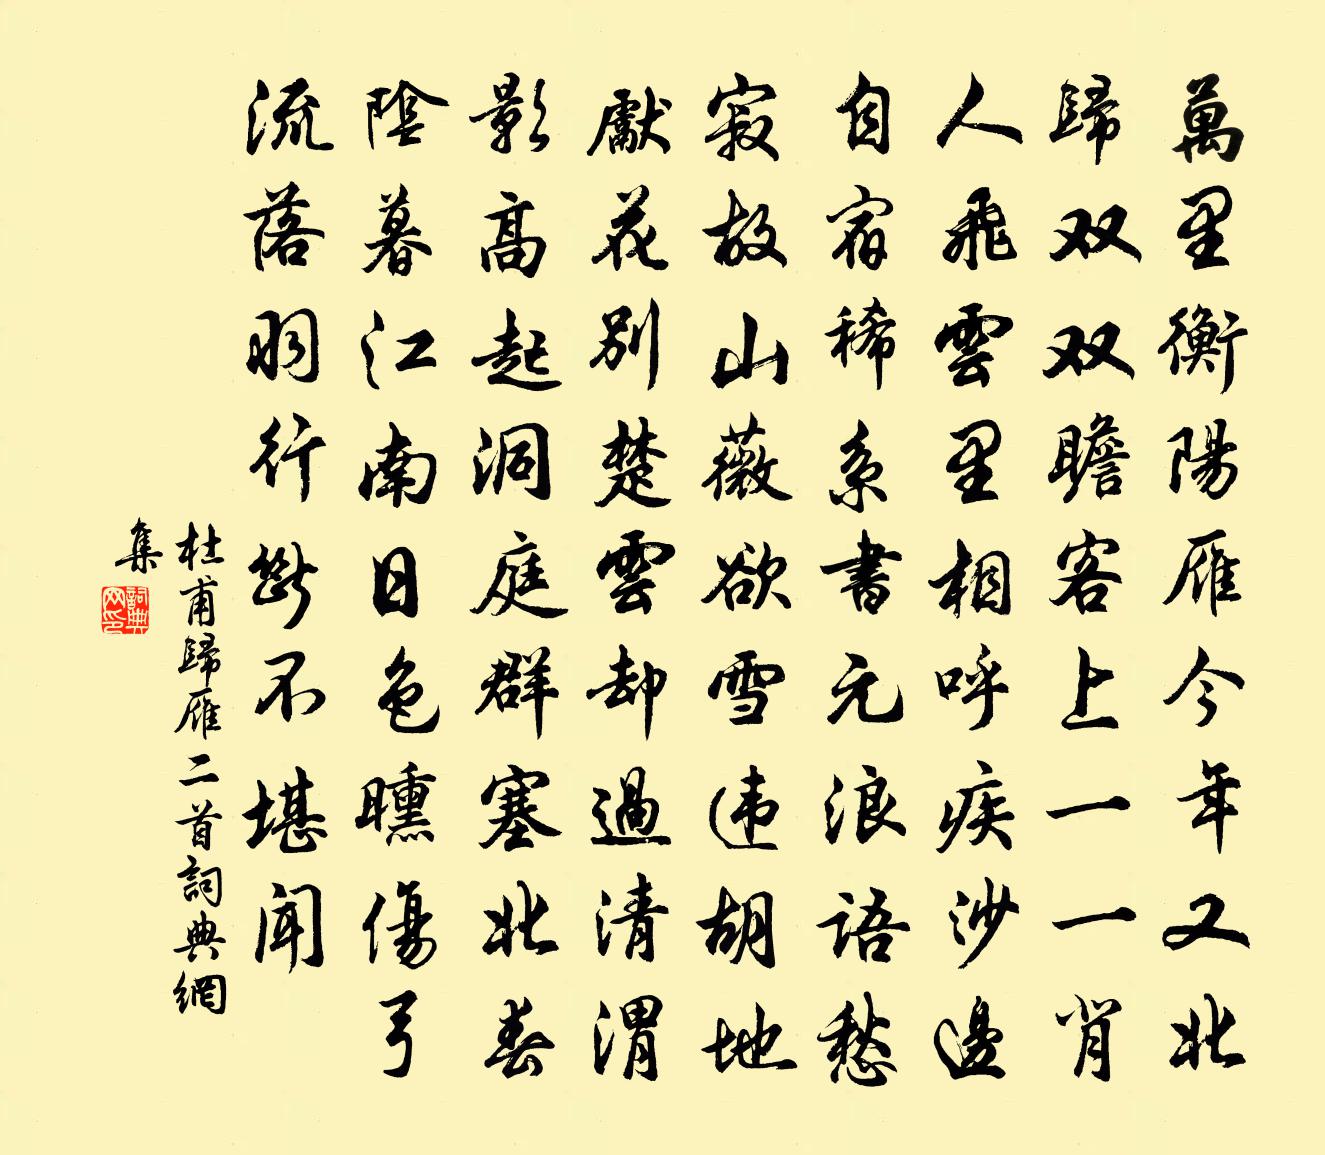 萬里衡陽雁今年又北
歸双双瞻客上一一背
人飛雲里相呼疾沙邊
自宿稀系書元浪語愁
寂故山薇欲雪违胡地
獻花別楚雲却過清渭
影高起洞庭群塞北春
陰暮江南日色曛傷弓
流落羽行斷不堪聞
杜甫歸雁二首詞典網
集
詞典
网印